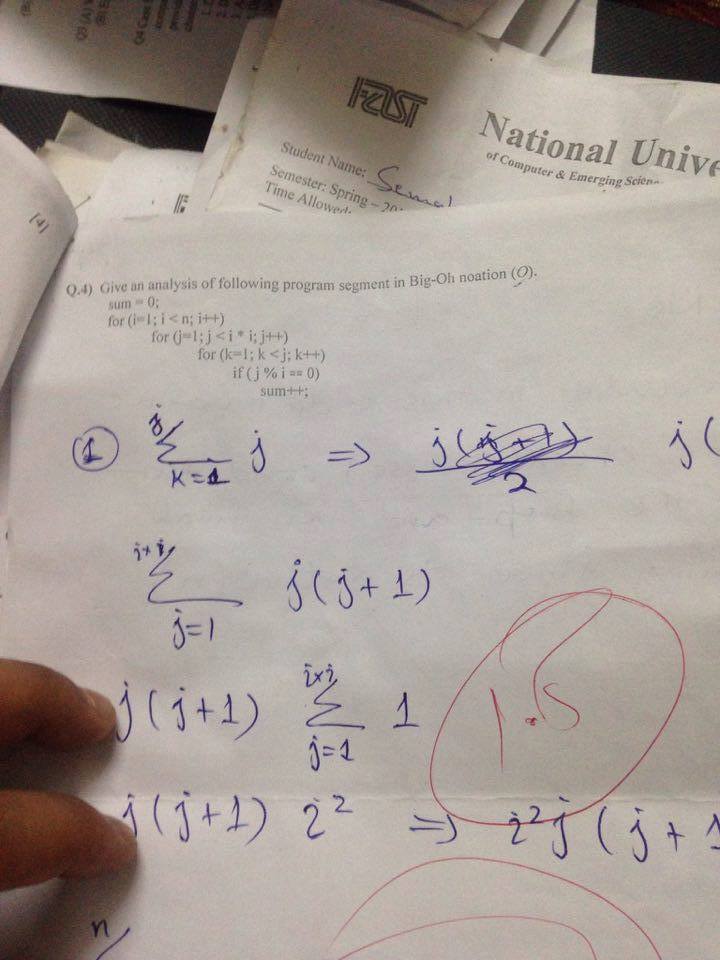 FAST
National Unive
of Computer & Emerging Scien
Student Name:
Semester: Spring – 20
Time Allowed:
[4]
Q.4) Give an analysis of following program segment in Big-Oh noation (O).
sum = 0;
for (i=1; i < n; i++)
for (j=1; j < i * i; j++)
for (k=1; k < j; k++)
if ( j % i == 0)
sum++;
① j Σ k=1 j ⇒ j( 2 j(
i×i Σ j=1 j(j+1)
j(j+1) i×i Σ j=1 1
1.5
j(j+1) i² ⇒ i²j(j+1
n